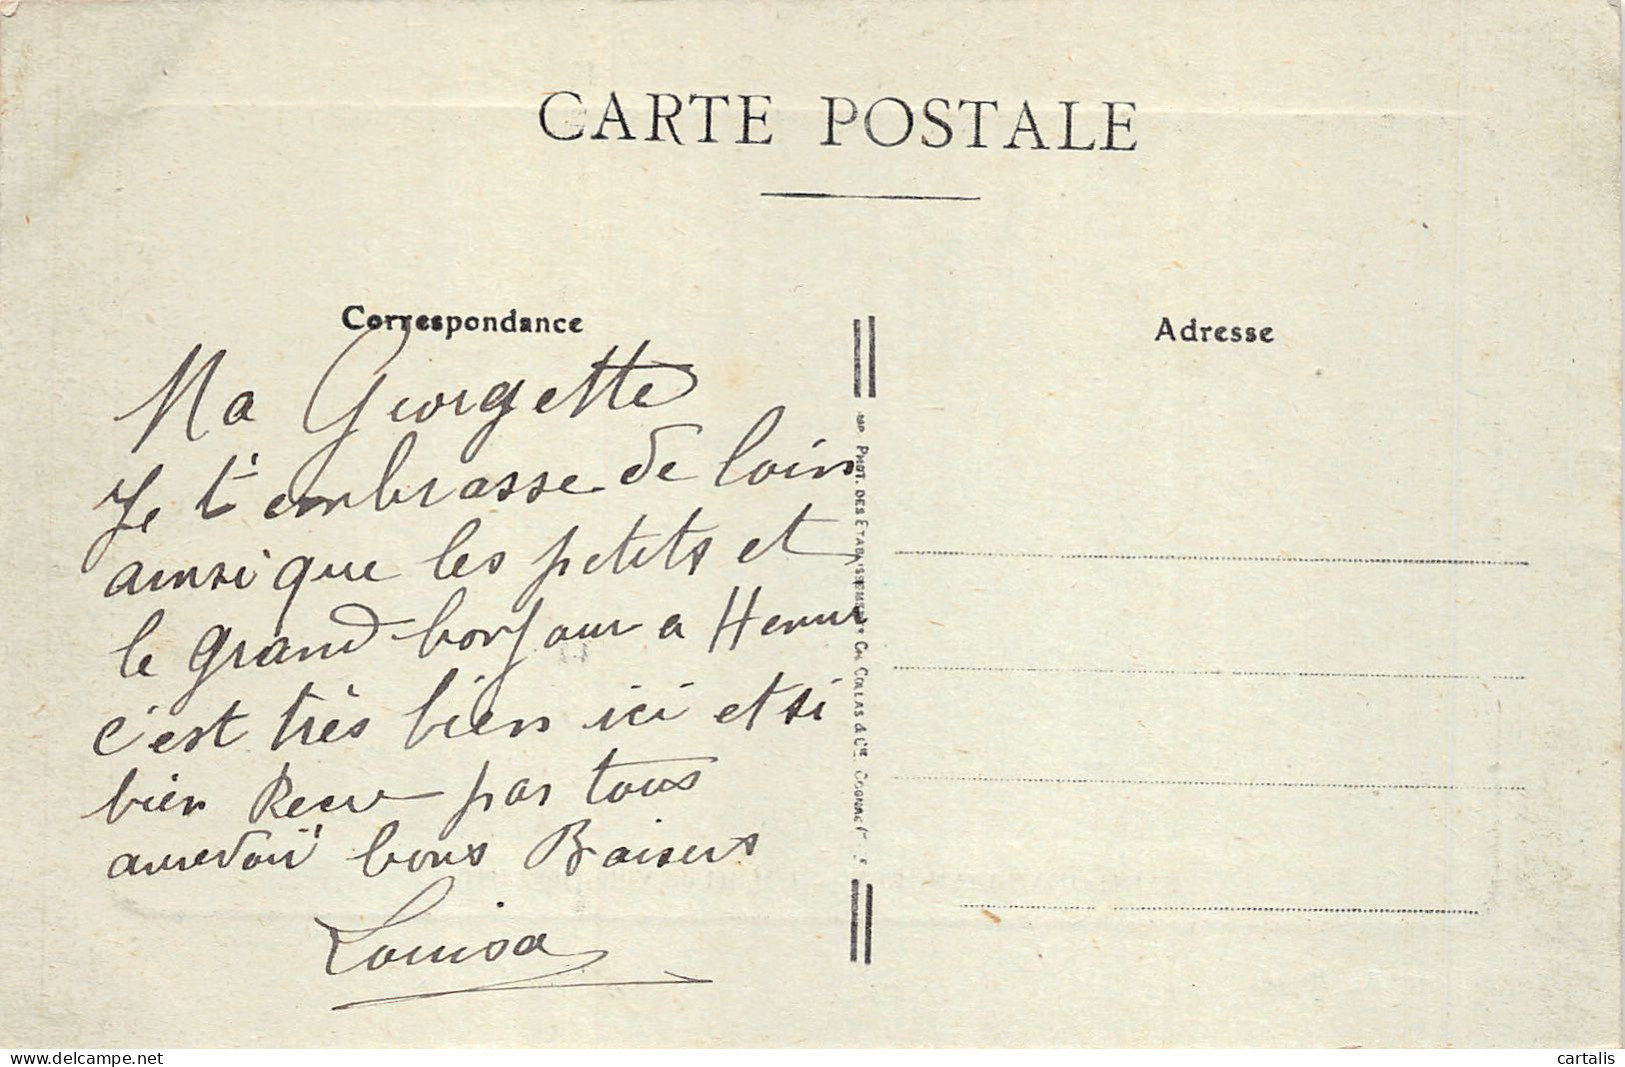 CARTE POSTALE
Correspondance
Ma Georgette
Je t'embrasse de loin
ainsi que les petits et
le grand bonjour a Henri
c'est très bien ici et si
bien Recu par tous
aurevoir bons Baisers
Louisa
PHOT. DES ETABLISSEMENTS CH. COLLAS & CIE COGNAC
Adresse
cartalis